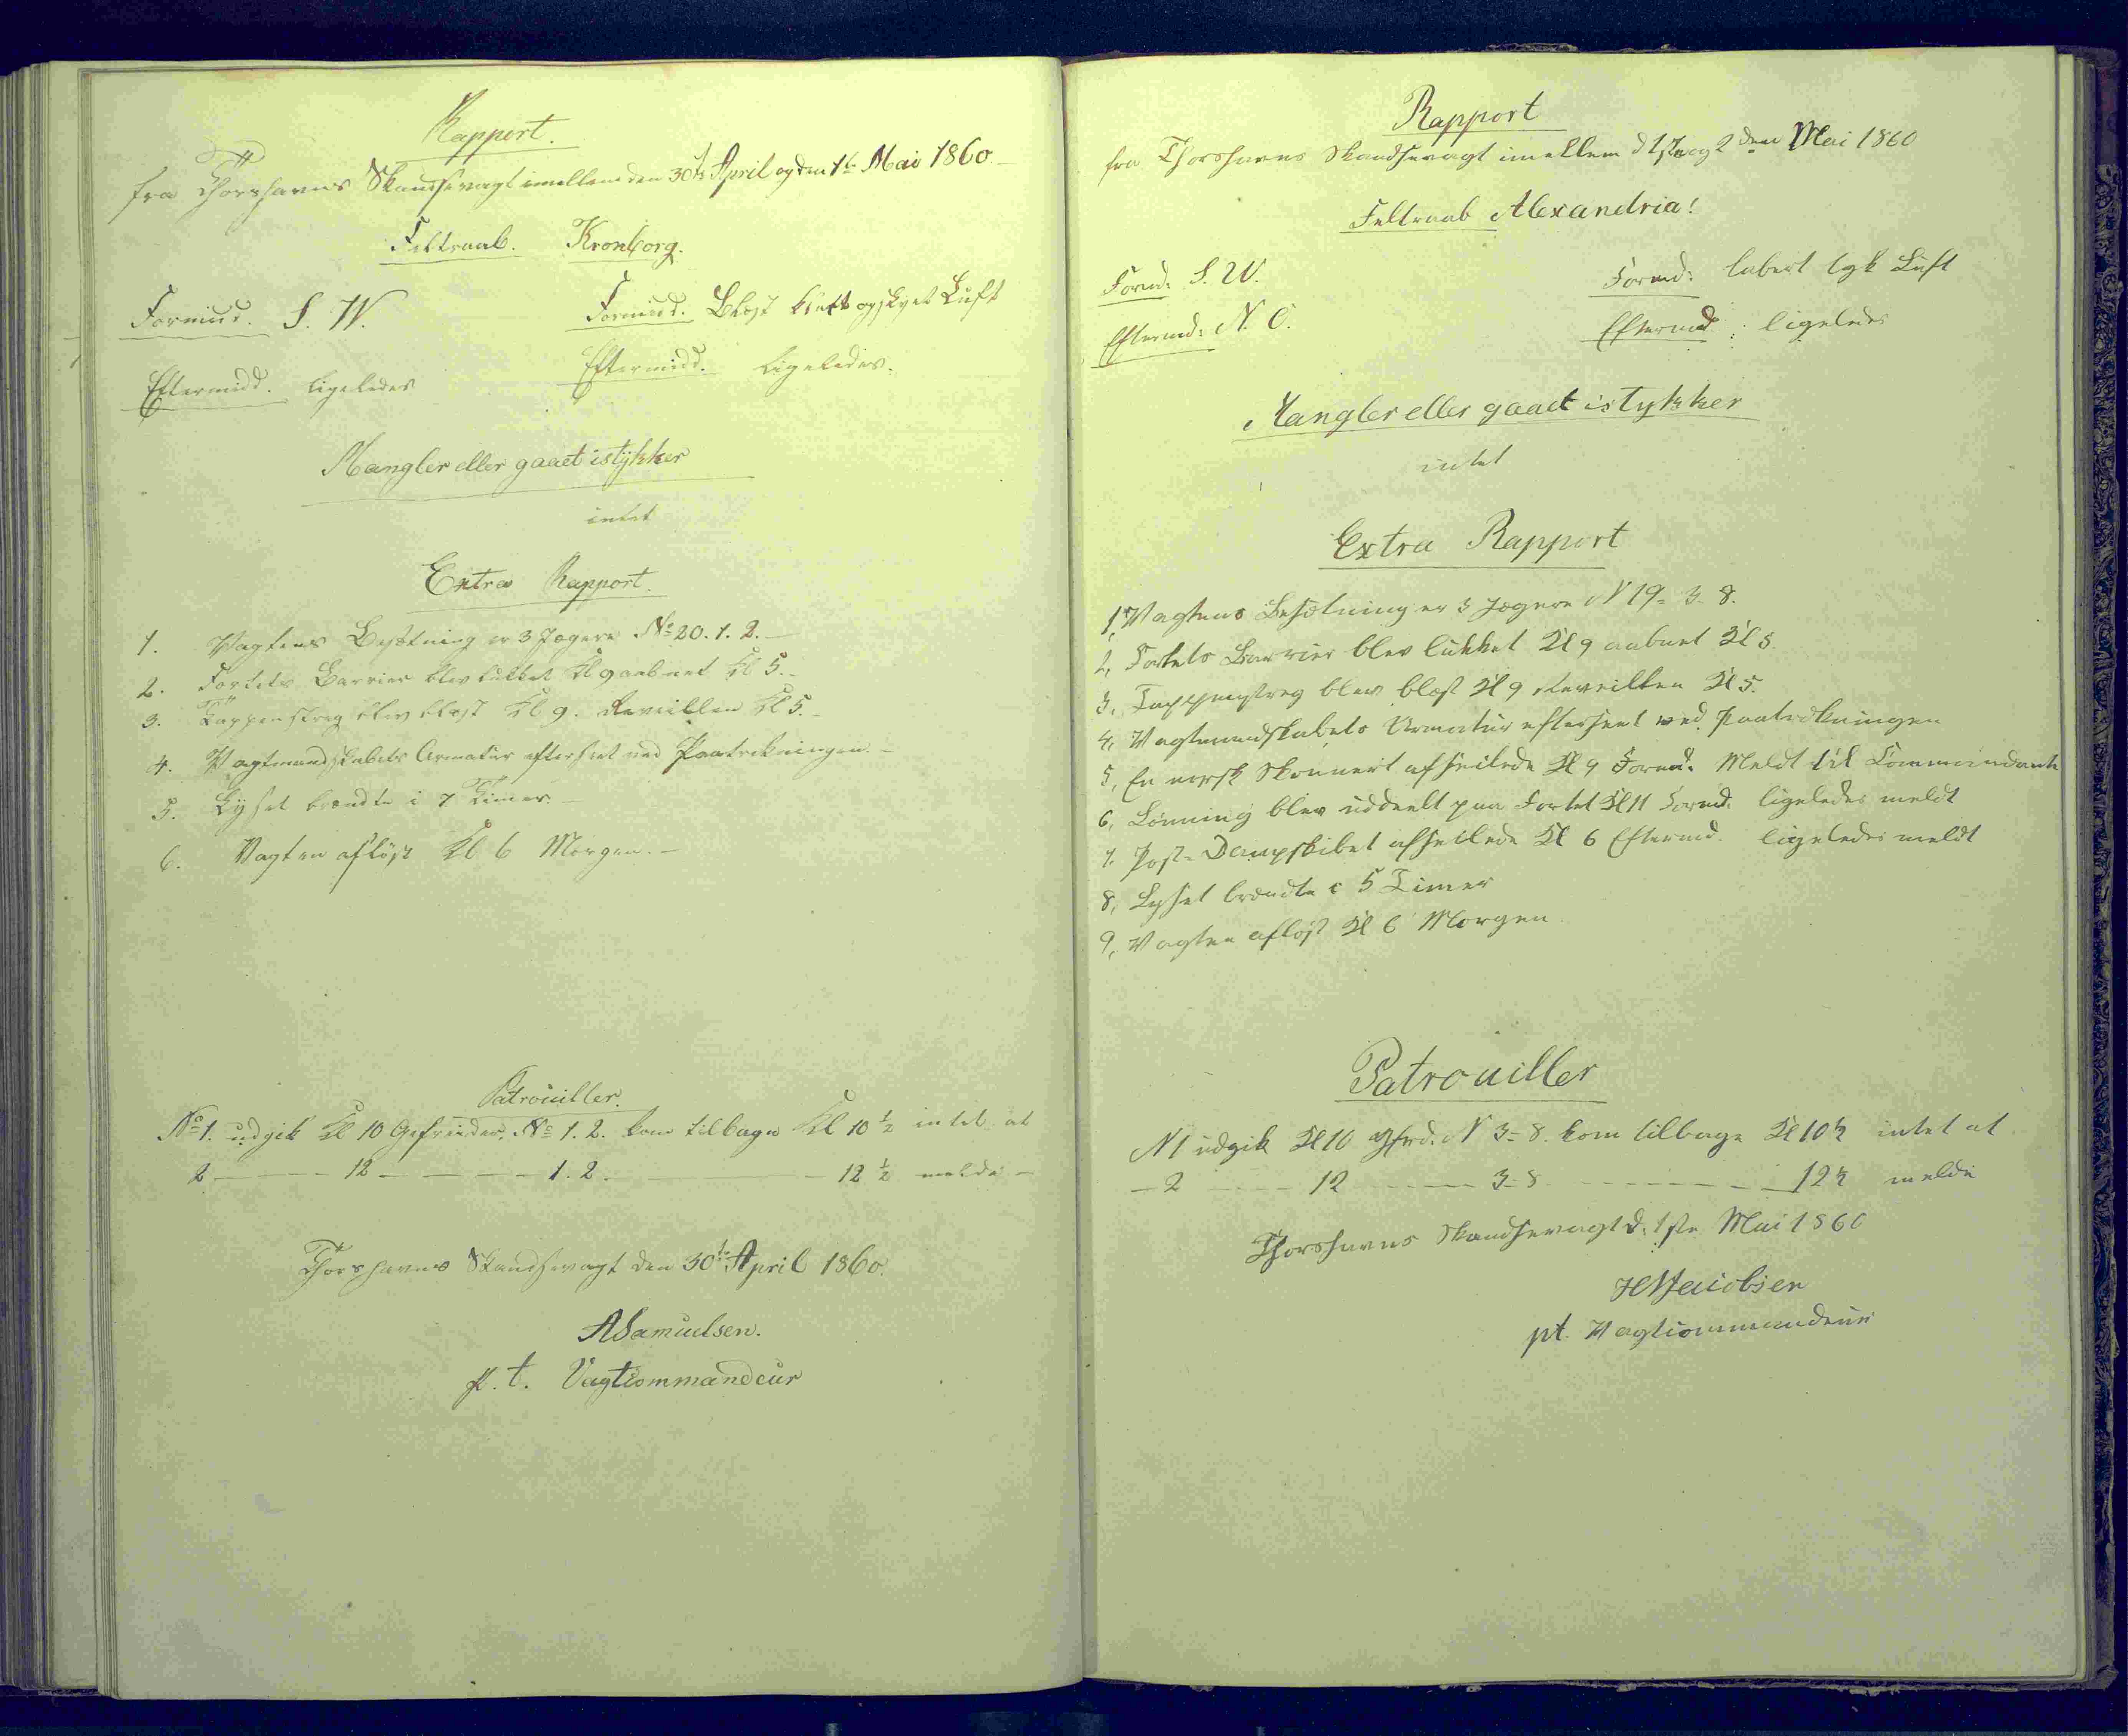 Rapport.
fra Thorshavns Skandsevagt imellem den 30te April og den 1te Mai 1860
Feltraab. Kronborg.
Formidd. S. W. Formidd. Blæst og skyet Luft
Eftermidd. ligeledes Eftermidd. ligeledes.
Mangler eller gaaet istykker
intet
Extra Rapport.
1. Vagtens Besætning er 3 Jægere No 20. 1. 2.
2. Fortets Barrier blev lukket Kl 9 aabnet Kl 5.
3. Tappenstreg blev blæst Kl 9. Reveillen Kl 5.
4. Vagtmandskabets Armatur efterseet ved Paatrækningen.
5. Lyset brændte i 7 Timer.
6. Vagten afløst Kl 6 Morgen.
Patrouiller.
No 1. udgik Kl 10 Gefreider, No 1. 2. kom tilbage Kl 10 ½ intet at
2 — 12 — 1. 2. — 12 ½ melde
Thorshavns Skandsevagt den 30te April 1860.
ASamuelsen.
p. t. Vagtcommandeur
Rapport
fra Thorshavns Skandsevagt imellem d 1ste og 2den Mai 1860
Feltraab Alexandria!
Formd: S. W. Formd: labert tyk Luft
Eftermd: N. O. Eftermd: ligeledes
Mangler eller gaaet istykker
intet
Extra Rapport
1, Vagtens Besætning er 3 Jægere N 19- 3- 8.
2, Fortets Barrier blev lukket Kl 9 aabnet Kl 5.
3, Tappenstreg blev blæst Kl 9 Reveillen Kl 5.
4, Vagtmandskabets Armatur efterseet ved Paatrækningen
5, En norsk Skonnert afseilede Kl 9 Formd. Meldt til Commandanten
6, Lønning blev uddeelt paa Fortet Kl 11 Formd. ligeledes meldt
7. Post-Dampskibet afseilede Kl 6 Eftermd. ligeledes meldt
8, Lyset brændte i 5 Timer
9, Vagten afløst Kl 6 Morgen.
Patrouiller
N 1 udgik Kl 10 Gfrd. N 3- 8. kom tilbage Kl 10½ intet at
- 2 — 12 — 3- 8 — 12½ melde
Thorshavns Skandsevagt d. 1ste Mai 1860
Jacobsen
pt. Vagtcommandeur